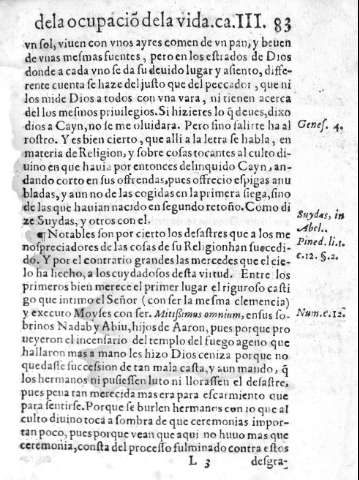 dela ocupaciõ dela vida.ca.III. 83
vn sol, viuen con vnos ayres comen de vn pan, y beuen
de vnas mesmas fuentes, pero en los estrados de Dios
donde a cada vno se da su deuido lugar y asiento, diffe-
rente cuenta se haze del justo que del peccador, que ni
los mide Dios a todos con vna vara, ni tienen acerca
del los mesinos priuilegios. Si hizieres lo q̃ deues, dixo
dios a Cayn, no se me oluidara. Pero sino salirte ha al
rostro. Y es bien cierto, que alli a la letra se habla, en
materia de Religion, y sobre cosas tocantes al culto di-
uino en que hauia por entonces delinquido Cayn, an-
dando corto en sus offrendas, pues offrecio espigas anu
bladas, y aun no de las cogidas en la primera siega, sino
de las que hauian nacido en segundo retoño. Como di
ze Suydas, y otros con el.
¶ Notables son por cierto los desastres que a los me
nospreciadores de las cosas de su Religion han succedi-
do. Y por el contrario grandes las mercedes que el cie-
lo ha hecho, a los cuydadosos desta virtud. Entre los
primeros bien merece el primer lugar el riguroso casti
go que intimo el Señor (con ser la mesma clemencia)
y executo Moyses con ser. Mitissimus omnium, en sus so-
brinos Nadab y Abiu, hijos de Aaron, pues porque pro
ueyeron el incensario del templo del fuego ageno que
hallaron mas a mano les hizo Dios ceniza porque no
quedasse succession de tan mala casta, y aun mando, q̃
los hermanos ni pusiessen luto ni llorassen el desastre,
pues pena tan merecida mas era para escarmiento que
para sentirse. Porque se burlen hermanos con lo que al
culto diuino toca a sombra de que ceremonias impor-
tan poco, pues porque vean que aqui no huuo mas que
ceremonia, consta del processo fulminado contra estos
L 3 desgra-
Genes. 4.
Suydas, in
Abel.
Pined. li. 1.
c. 12. §. 2.
Num. c. 12.